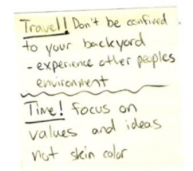 Travel! Don't be confined
to your backyard
- experience other peoples
environment
Time! focus on
values and ideas
not skin color